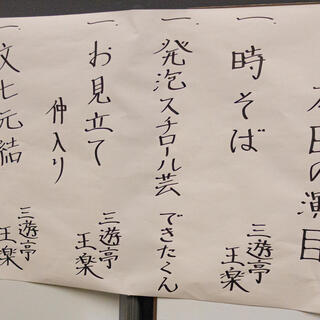 本日の演目
一、時そば 三遊亭王楽
一、発泡スチロール芸 できたくん
一、お見立て 三遊亭王楽
仲入り
一、文七元結 三遊亭王楽